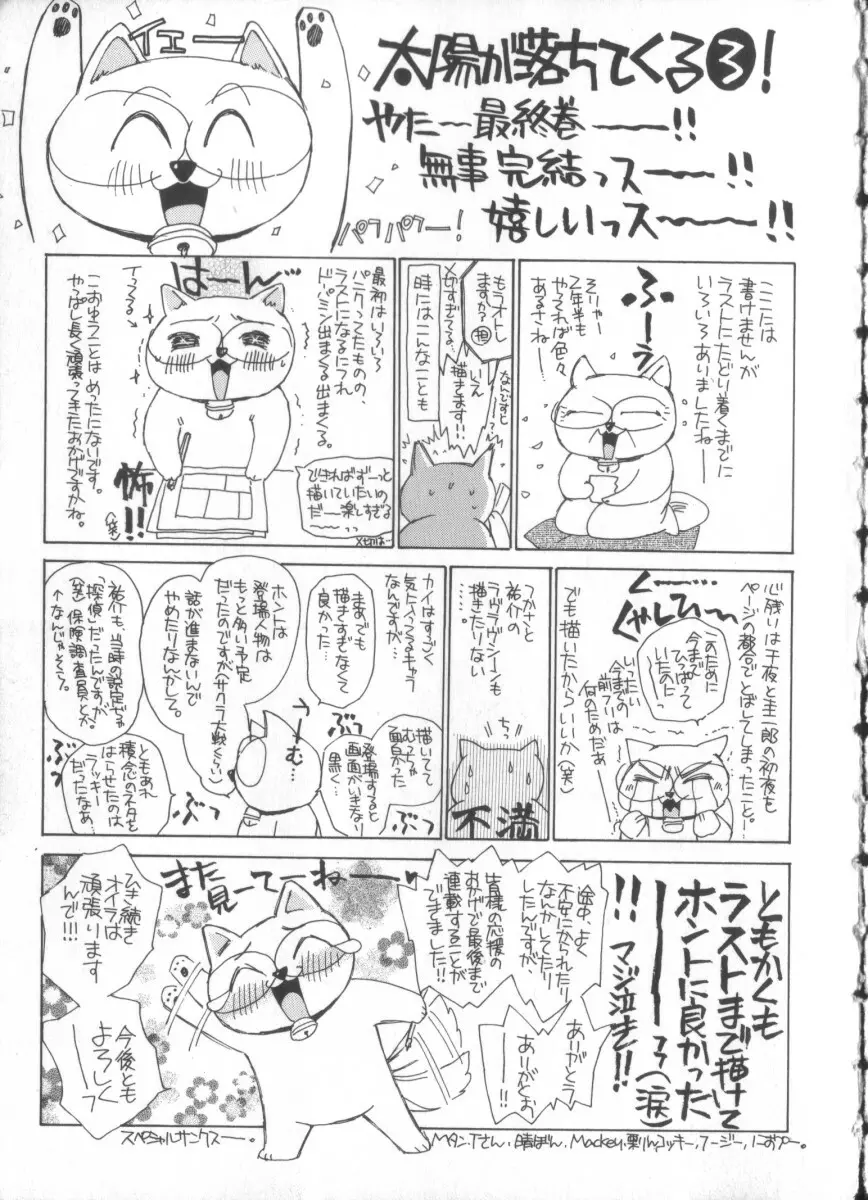 イエー
太陽が落ちてくる③!
やたー最終巻ーー!!
無事完結っスーー!!
嬉しいっスーー!!
パフパフー!
ここでは
書けませんが
ラストにたどり着くまでに
いろいろありましたねー
ふーう
そりゃー
2年半も
やるれば色々
あるさねー
もうオトし
ますか?
担
〆切すぎてる…
なんですとー?
いえ
描きます!!
時にはこんなことも
最初はいろいろ
パニクってたものの、
ラストになるにつれ
ドパミン出まくる出まくる。
は〜ん
イってる→
こおゆうことはめったにないです。
やっぱし長く頑張ってきたおかげですかね。
怖!!
(笑)
できればずーっと
描いていたいの
だー楽しすぎる
〜〜っっ
〆切はー
心残りは千夜と圭一郎の初夜を
ページの都合でとばしてしまったこと!
くー…
くやしひ〜
このために
今まで
ひっぱって
いたのにっ
いったい
今までの
前フリは
何のためだあー
でも描いたからいいか(笑)
つかさと
祐介の
ラヴラヴシーンも
描きたりない
……。
ちっ
不満
カイはすごく
気に入ってるキャラ
なんですが…
まあでも
描きすぎなくて
良かった…
描いてて
むっちゃ
面白かった
登場すると
画面がいきなり
黒く…
ホントは
登場人物は
もっと多い予定
だったのですが(サクラ大戦くらい)
話が進まないんで
やめたりなんかして。
うーむ…
ぶつ
ぶつ
ぶつ
ぶつ
祐介も、当時の設定じゃ
「探偵」だったんですが
(笑)保険調査員とか。
↑なんじゃそら。
ともあれ
積念のネタを
はらせたのは
ラッキー
だったなあ…
ともかくも
ラストまで描けて
ホントに良かった
ーーっっ(涙)
!!マジ泣き!!
途中、よく
不安にかられたり
なんかしてたり
したんですが、
皆様の応援の
おかげで最後まで
連載することが
できました!!
ありがとう
ーー!!
ありがとお
ーー!!
また
見ーてーねーー
ひき続き
オイラは
頑張ります
んで!!!
今後とも
よろしく
ーーっ
スペシャルサンクスー。
Mタン、Tさん、晴ぼん、Mackey、栗りん、コッキー、フージー、におやー。